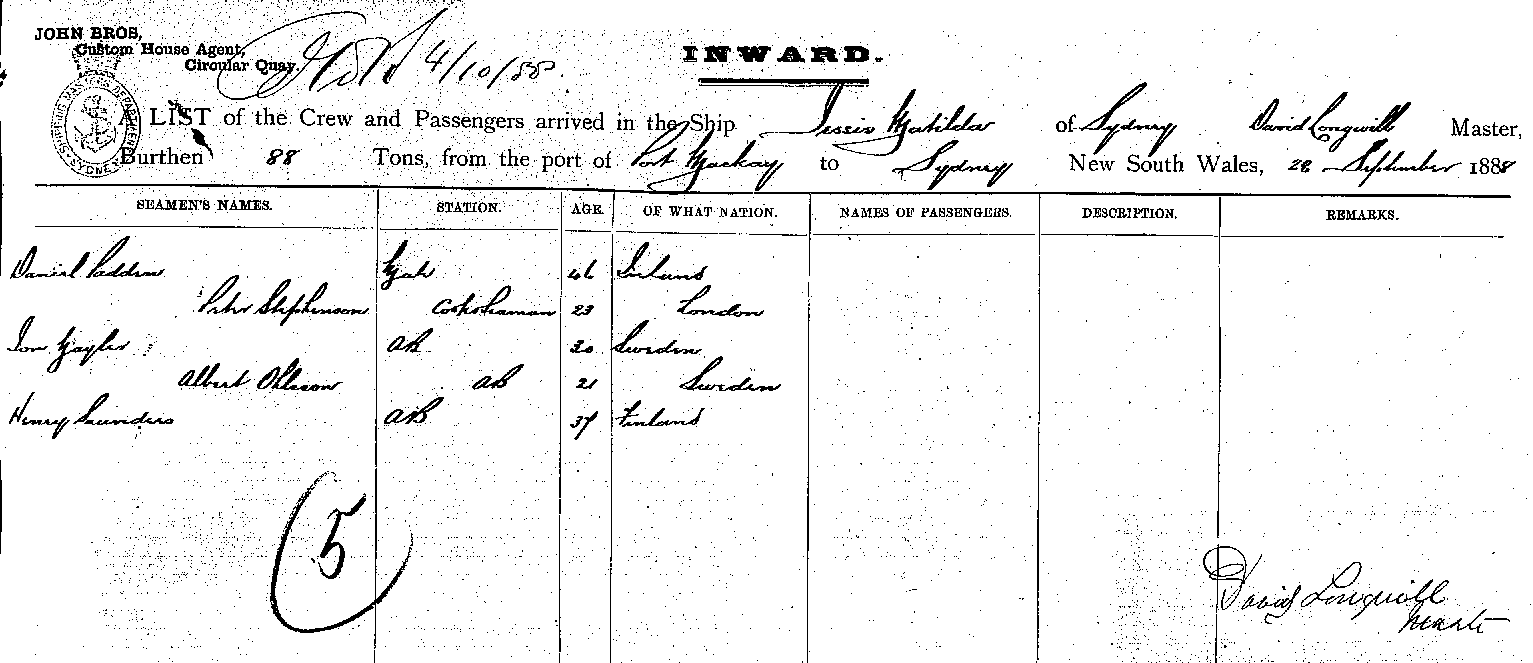 JOHN BROS,
Custom House Agent,
Circular Quay.
4/10/88.
INWARD.
A LIST of the Crew and Passengers arrived in the Ship Jessie Matilda of Sydney David Longwill Master,
Burthen 88 Tons, from the port of Port Mackay to Sydney New South Wales, 28 September 1888
SEAMEN'S NAMES. STATION. AGE OF WHAT NATION. NAMES OF PASSENGERS. DESCRIPTION. REMARKS.
Daniel Padden 46 Ireland
Peter Stephenson 23 London
AB 30 Sweden
Albert Ohlsson AB 21 Sweden
Henry Saunders AB 37 Finland
5
David Longwill